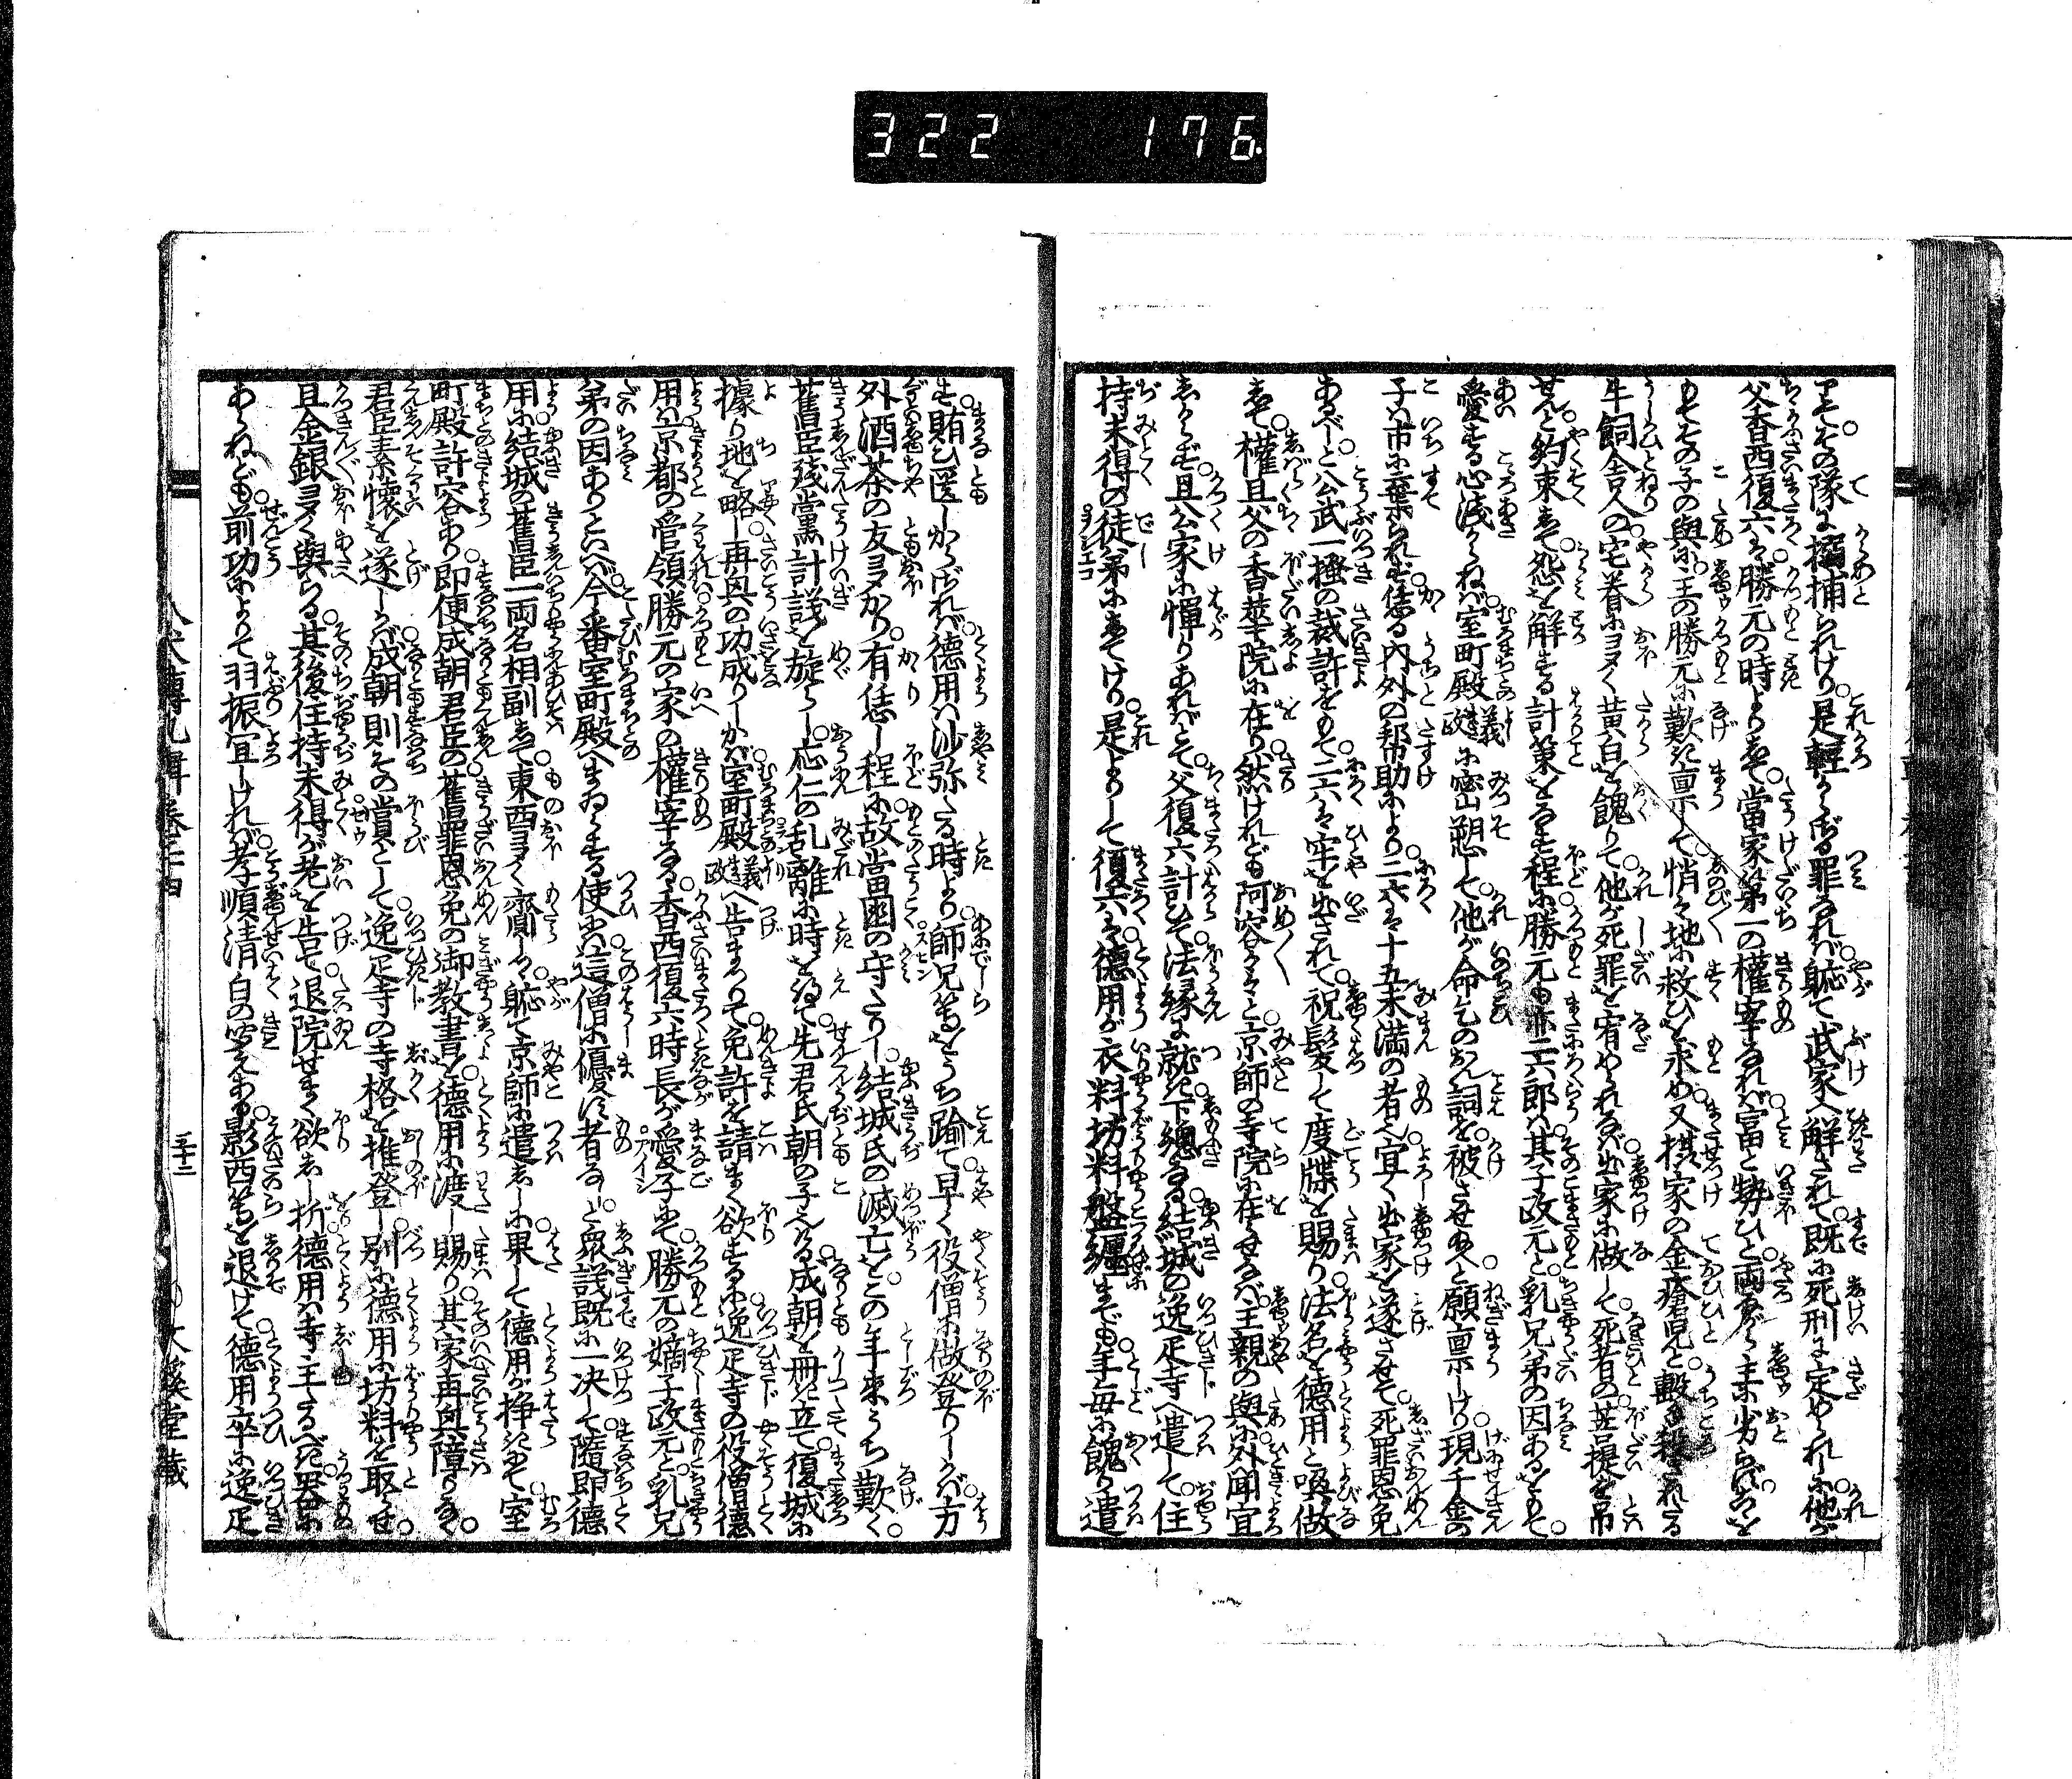 322 176
りてその隊に搦捕られけり。是軽からざる罪なれば、軈て武家へ解されて、既に死刑に定められしに、他が
父香西復六は、勝元の時よりして、當家第一の權宰なれば、富と勢ひと両ながら、主に劣らず。
もてその子の與に、主の勝元に歎き稟して、悄々地に救ひを求め、又棋家の金瘡児と、轂き殺されたる
牛飼舎人の宅眷に、ヨヌく黄白を餽りて、他が死罪を宥められなば、出家に做して、死者の菩提を吊
せんと約束して、怨を解する計策をなす程に、勝元も亦二六郎は、其子政元と、乳兄弟の因あるをもて、
愛する心淺からねば、室町殿義政に密山愬して、他が命乞のお詞を、被させ給へと願稟しけり。現千金の
子は市に棄られず。恁る内外の幇助により、二六は十五未満の者也、宜く出家を遂させて、死罪恩免
あるべしと、公武一揆の裁許をもて、二六は牢を出されて、祝髪して度牒を賜り、法名を徳用と喚做
して、權且父の香華院に在り。然けれども阿容々々と、京師の寺院に在らせなば、主親の與に外聞宜
しからず、且公家に憚りあればとて、父復六計ひて、法縁に就き下總なる、結城の逸疋寺へ遣して、住
持未得の徒弟にしてけり。是よりして復六は、徳用が衣料坊料盤纏まで、年毎に餽り遣
す。賄ひ匱しからざれば、徳用は沙弥たる時より、師兄等をうち踰て、早く役僧に做登りしかば、方
外酒茶の友ヨヌかり。有恁し程に、故當國の守たりし、結城氏の滅亡を、この年來うち歎く、
舊臣残黨計議を旋らし、応仁の乱離に時を得て、先君氏朝の子なる、成朝を冊き立て、復城に
據り地を略し、再興の功成りしかば、室町殿義政へ告まゐりて、免許を請まく欲するに、逸疋寺の役僧徳
用は、京都の管領勝元の家の權宰なる、香西復六時長が愛子にて、勝元の嫡子政元と、乳兄
弟の因ありといへば、今番室町殿へまゐらする使には、這僧に優す者なしと、衆議既に一决して、隨即徳
用に結城の舊臣一両名相副して、東西ヨヌく齎しつ、軈て京師に遣しゝに、果して徳用が挣きにて、室
町殿許容あり。即便成朝君臣の、舊罪恩免の御教書を、徳用に渡し賜り、其家再興障りなく、
君臣素懐を遂しかば、成朝則その賞として、逸疋寺の寺格を推登し、別に徳用に坊料を取らせ、
且金銀ヨヌく與らる。其後住持未得が老を告て、退院せまく欲しゝ折、徳用は寺主たるべき器に
あらねども、前功によりて、羽振宜しければ、孝順清白の笑えある、影西等を退けて、徳用卒に逸疋
八犬傳九輯巻之廿四
三十二
文溪堂藏